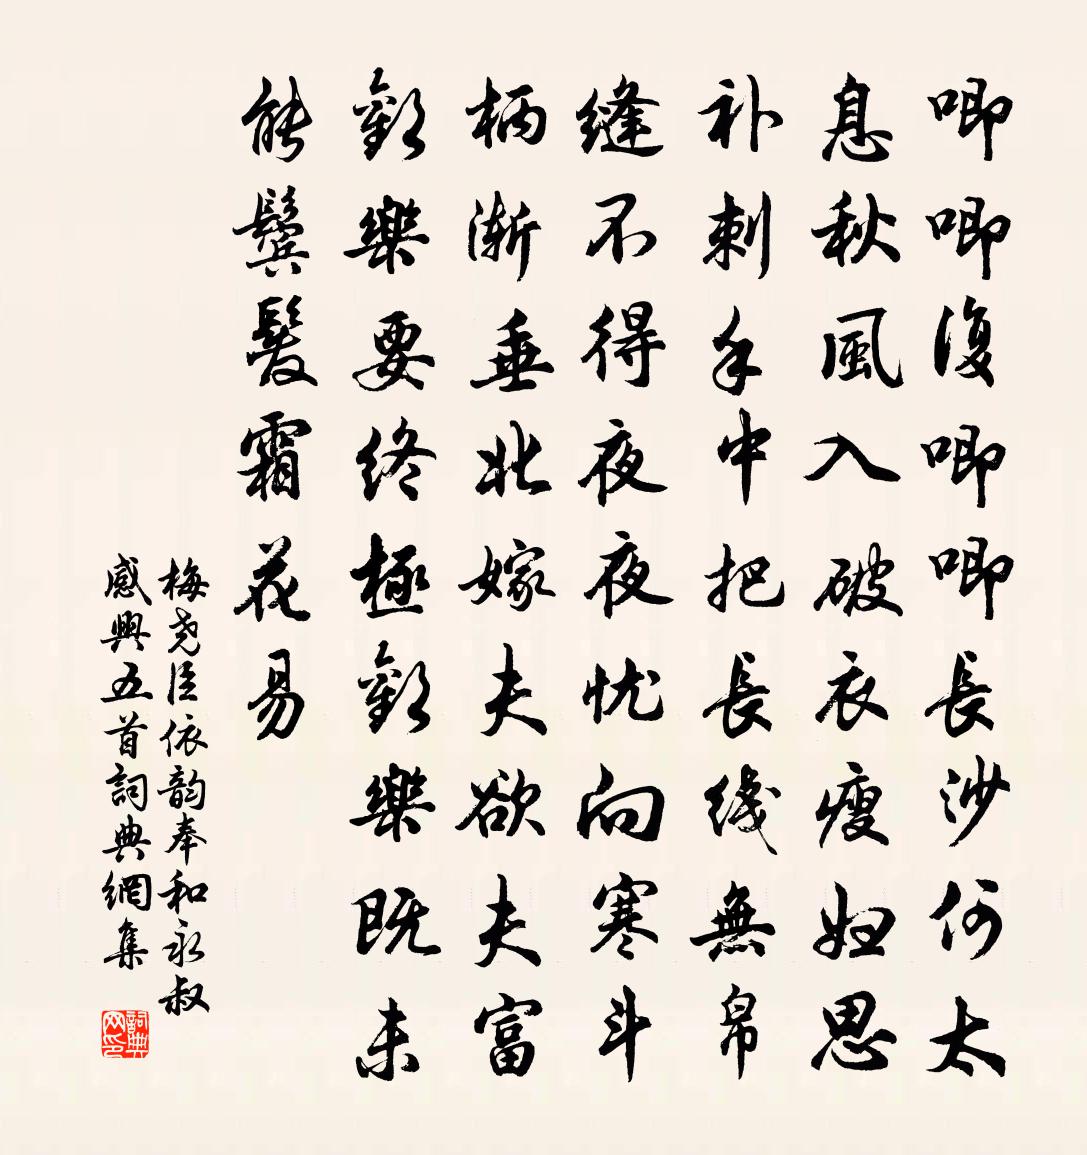 唧唧復唧唧長沙何太
息秋風入破衣瘦妇思
补刺手中把長线無帛
缝不得夜夜忧向寒斗
柄渐垂北嫁夫欲夫富
歡樂要终極歡樂既未
能鬓髮霜花易
梅尧臣依韵奉和永叔
感興五首詞典網集
詞典网印